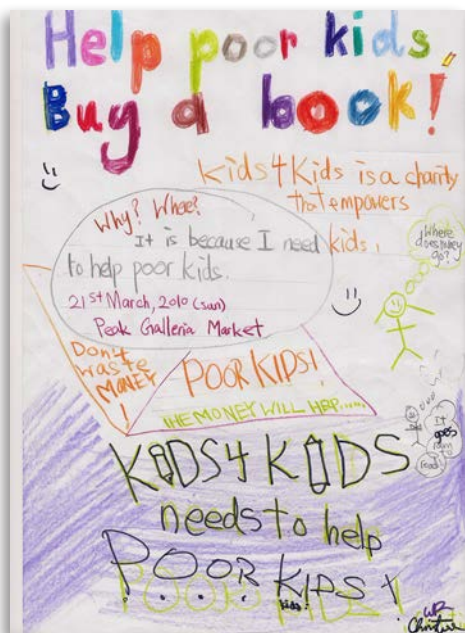 Help poor kids
Buy a book!
Kids4Kids is a charity
that empowers
kids.
Why?
It is because I need
to help poor kids.
21st March, 2010 (sun)
Peak Galleria Market
Where
does money
go?
Don't
waste
MONEY
!
POOR KIDS!
THE MONEY WILL HELP......
It
goes
food
KIDS4 KIDS
needs to help
POOR KIDS!
kids!
Christine